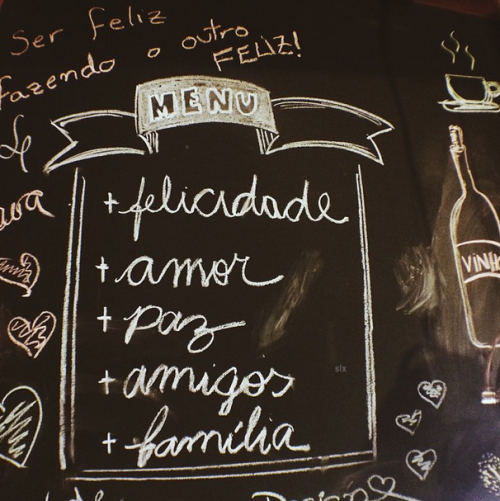 Ser Feliz
fazendo o outro
FELIZ!
MENU
+ felicidade
+ amor
+ paz
+ amigos
+ família
VINHO
six